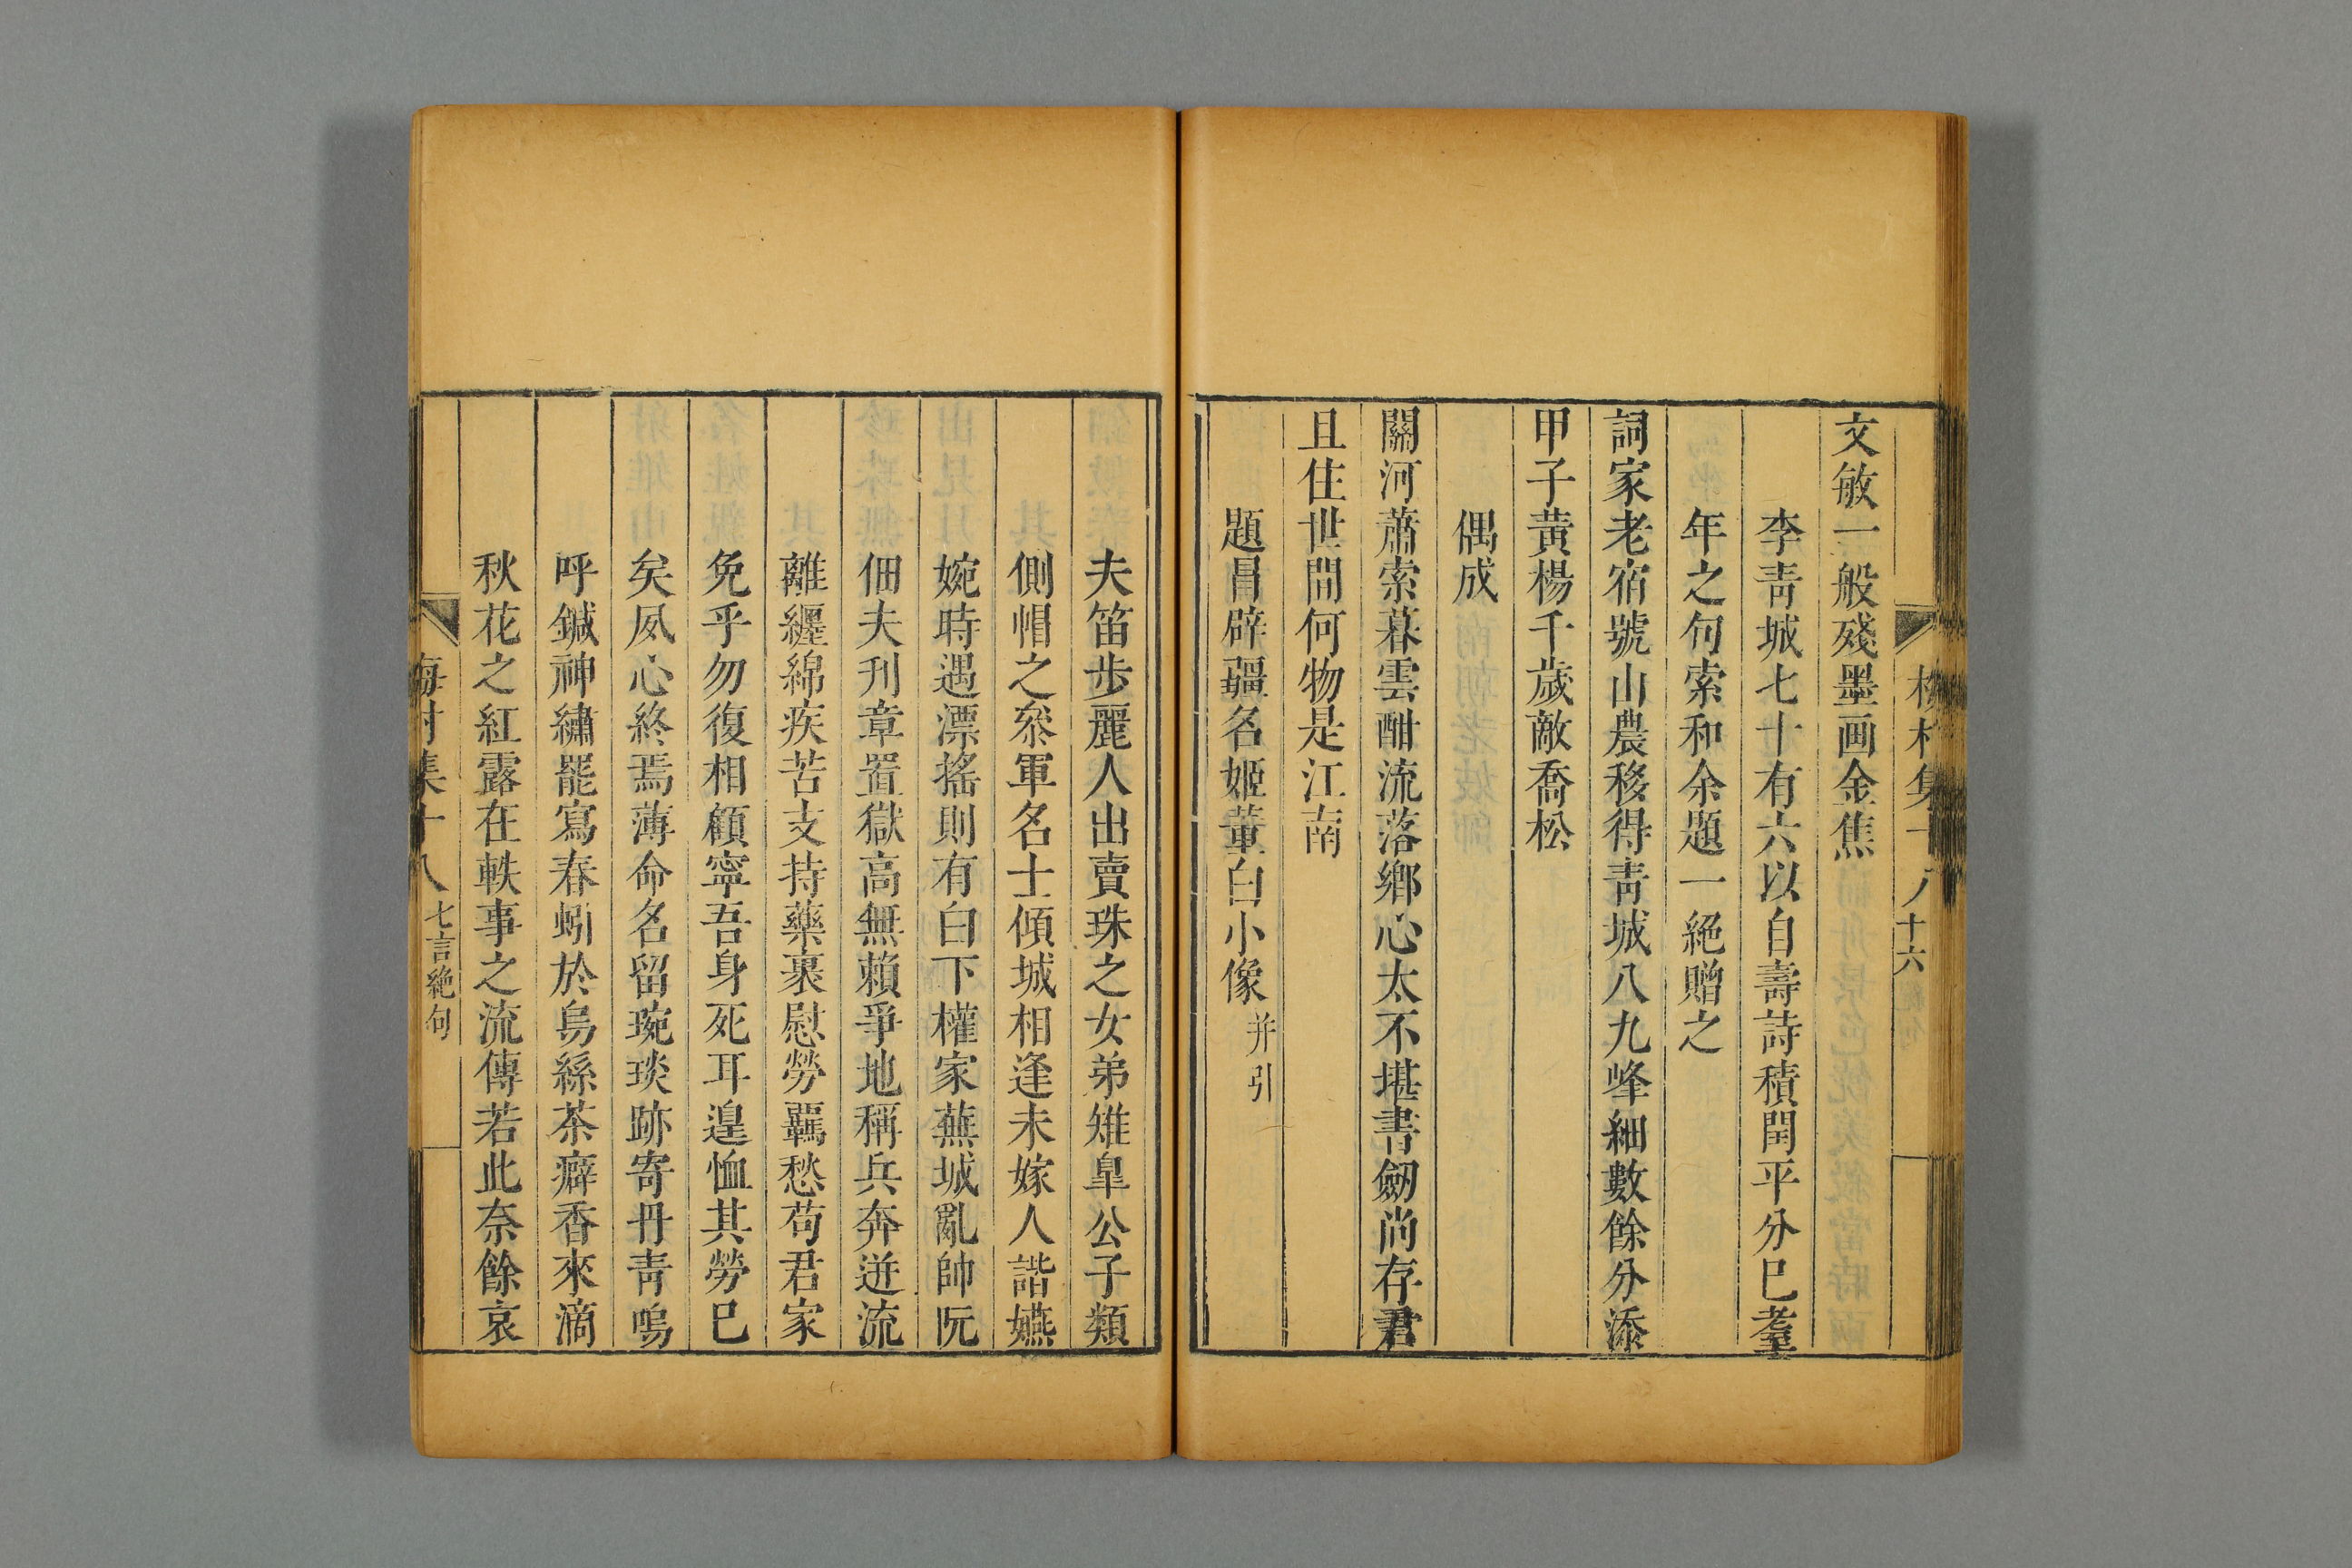 梅村集十八 十六
文敏一般殘墨画金焦
李靑城七十有六以自壽詩積閏平分巳耄
年之句索和余題一絕贈之
詞家老宿號山農移得靑城八九峰細數餘分添
甲子黃楊千歲敵喬松
偶成
關河蕭索暮雲酣流落鄉心太不堪書劒尚存君
且住世間何物是江南
題昌辟疆名姬董白小像 并引
夫笛步麗人出賣珠之女弟雉皐公子類
側帽之叅軍名士傾城相逢未嫁人諧嬿
婉時遇漂搖則有白下權家蕪城亂帥阮
佃夫刋章置獄高無賴爭地稱兵奔迸流
離纒綿疾苦支持藥裹慰勞羈愁苟君家
免乎勿復相顧寧吾身死耳遑恤其勞巳
矣夙心終焉薄命名留琬琰跡寄丹靑嗚
呼鍼神繡罷寫春蚓於烏絲茶癖香來滴
秋花之紅露在軼事之流傳若此奈餘哀
梅村集十八 七言絕句